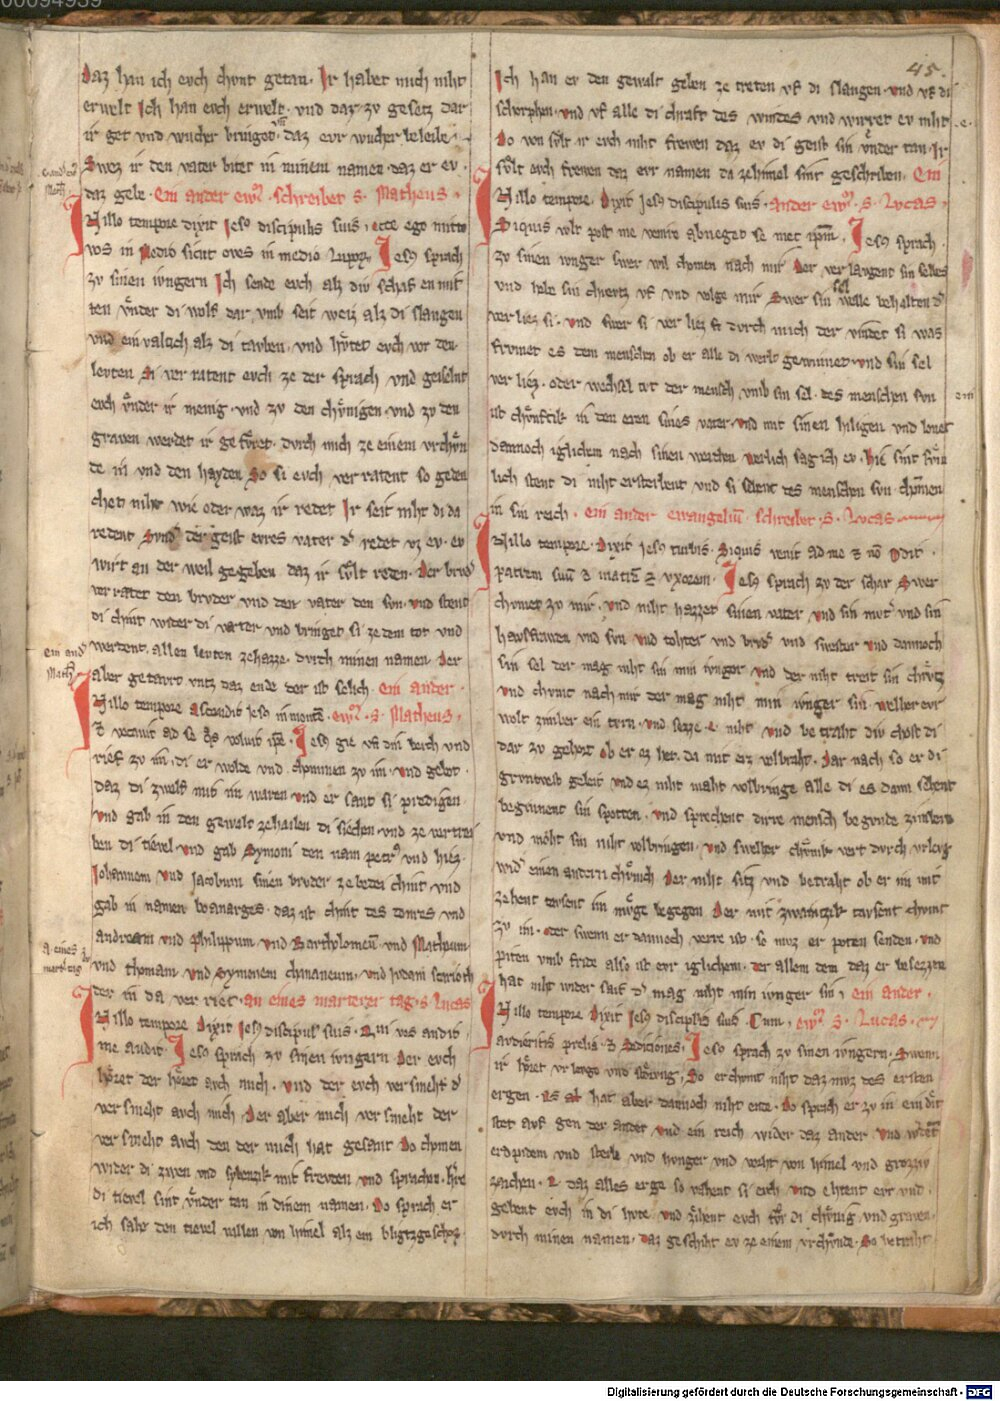 00094939
45.
Daz han ich evch chvnt getan. Ir habet mich niht
erwelt Ich han evch erwelt. vnd daz zv gesetz daz
ir get vnd wucher bringet. daz evr wucher beleibe.
Swez ir den vater bitet in minem namen daz er ev.
daz gebe. Ein ander ew. schreibet s. Matheus.
In illo tempore dixit Jesus discipulis suis. ecce ego mitto
vos in medio sicut oves in medio lupor. Jesus sprach
zv sinen ivngern Ich sende evch alz div schaf en mit
ten vnder di wolf dar vmb seit weiz alz di slangen
vnd einvaltich alz di tavben. vnd hvtet evch vor den
levten Si ver ratent evch ze der sprach vnd geiselnt
evch vnder ir menig. vnd zv den chvnigen. vnd zv den
graven werdet ir gefvret. dvrch mich ze einem vrchvn
de in vnd den hayden So si evch ver ratent so geden
chet niht wie oder waz ir redet Ir seit niht di da
redent Svnder der geist evres vater der redet vz ev. ev
wirt an der weil gegeben daz ir svlt reden. Der brvder
ver ratet den brvder vnd der vater den svn. vnd stent
di chint wider di vater vnd bringet si ze dem tot vnd
werdent allen levten ze hazze. dvrch minen namen. Der
aber getavrt vntz daz ende der ist selich. Ein ander
In illo tempore Ascendit Jesus in monte. ew. s. Matheus.
et vocavit ad se qs voluit ipse. Jesus gie vf den berch vnd
rief zv im. di er wolde vnd chomen zv im. vnd gebot.
daz di zwelf mit im waren vnd er sant si predigen
vnd gab in den gewalt ze hailen di siechen. vnd ze vertrei
ben di tievel. vnd gab Symoni den nam petrus vnd hiez
Johannem vnd Jacobum sinen brvder zebedei chint vnd
gab in namen boanarges. daz ist chint des donres vnd
andream vnd Philyppum vnd Bartholomeum. vnd Matheum
vnd thomam vnd Symonem chananeum. vnd Judam scarioth
der in da ver riet. an eines marterer tag. s. Lucas
In illo tempore Dixit Jesus discipulis suis. Qui vos audit
me audit. Jesus sprach zv sinen ivngern Der evch
horet der horet avch mich. vnd der evch versmeht der
versmeht avch mich Der aber mich versmeht der
versmeht avch den der mich hat gesant Do chomen
wider di zwen vnd sybenzik mit frevden vnd sprachen. herre
di tievel sint vnder tan in dinem namen. Do sprach er
ich sahe den tievel vallen von himel alz ein bligtzgeschoz.
ein and
Math
a. eines
mart tag
Ich han ev den gewalt geben ze treten vf di slangen. vnd vf di
schorphen. vnd vf alle di chraft des vindes vnd wirret ev niht
Do von svlt ir evch niht frewen daz ev di geist sin vnder tan. Ir
svlt evch frewen daz evr namen da ze himel sint geschriben. Ein
In illo tempore. Dixit Jesus discipulis suis. ander ew. s. Lucas.
Siquis vult post me venire abneget se met ipm. Jesus sprach
zv sinen ivnger swer wil chomen nach mir Der verlavgent sin selbes
vnd hebe sin chrevtz vf vnd volge mir Swer sin sel welle behalten der
verlies si. vnd swer si verliez dvrch mich der vindet si was
frvmet es dem menschen ob er alle di werlt gewinnet vnd sin sel
verliez. oder wechsel tvt der mensch vmb sin sel. des menschen svn
ist chvnftik in den eren sines vater. vnd mit sinen hiligen vnd lonet
dannoch iglichem nach sinen werchen werlich sag ich ev. hie sint svm
lich stent di niht ersterbent vnd si sehent des menschen svn chomen
in sin reich. ein ander ewangelium schreibet s. Lucas
In illo tempore. Dixit Jesus turbis. Siquis venit ad me et non odit
patrem suum et matrem et vxorem. Jesus sprach zv der schar Swer
chvmet zv mir. vnd niht hazzet sinen vater vnd sin mvter vnd sin
havsfrawen vnd svn vnd tohter vnd brvder vnd swester vnd dannoch
sin sel der mag niht sin min ivnger vnd der niht treit sin chrevtz
vnd chvmt nach mir der mag niht min ivnger sin. welher evr
wolt zimber ein tvrn. vnd sezze e niht vnd betraht div chost di
dar zv gehort ob er ez het. da mit erz volbraht. Dar nach so er di
grvntvest geleit vnd ez niht maht volbringe alle di es dann sehent
beginnent sin spotten. vnd sprechent dirre mensch begvnde zimbern
vnd moht sin niht volbringen. vnd swelher chvnik vert dvrch vrlevg
wider einen anderen chvnich Der niht sitz vnd betraht ob er im mit
zehent tavsent im mvge begegen Der mit zwaintzik tavsent chvmt
zv im. oder swenn er dannoch verre ist. so mvz er poten senden. vnd
piten vmb fride also ist evr iglichem. der allem dem daz er besezzen
hat niht wider sait der mag niht min ivnger sin. ein ander.
In illo tempore Dixit Jesus discipulis suis. Cum, ew. s. Lucas.
audieritis prelia et Sediciones. Jesus sprach zv sinen ivngern. Swenn
ir horet vrlevge vnd storvng. So erchomt niht daz mvz des ersten
ergen. Es al hat aber dannoch niht ende. Do sprach er zv in ein diet
stet avf gen der ander vnd ein reich wider daz ander vnd werdent
erdpidem vnd sterb vnd hvnger vnd voraht von himel vnd grozziv
zaichen. E daz alles erge so vahent si evch vnd ehtent evr vnd
gebent evch in di hvte vnd zihent evch fvr di chvnig vnd graven.
dvrch minen namen. daz geschiht ev ze einem vrchvnde. So betraht
Digitalisierung gefördert durch die Deutsche Forschungsgemeinschaft - DFG